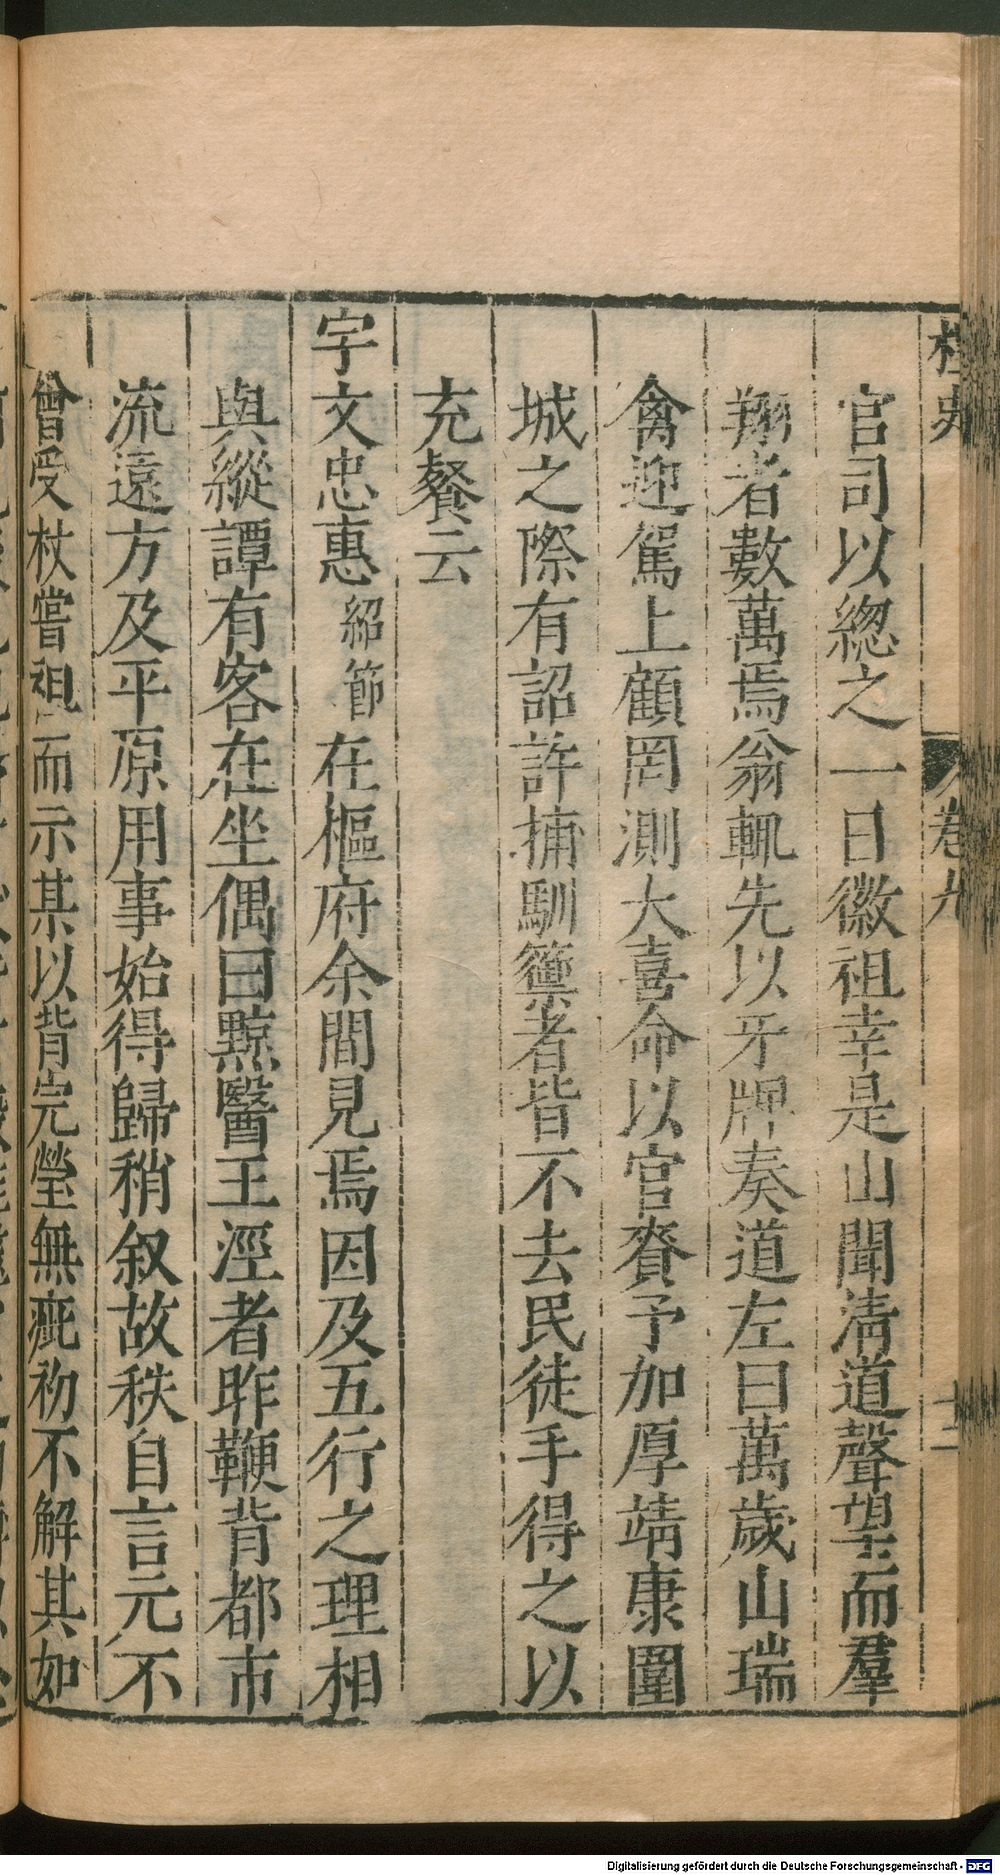 官司以總之一日徽祖幸是山聞淸道聲望而羣
翔者數萬焉翁輒先以牙牌奏道左曰萬歲山瑞
禽迎駕上顧罔測大喜命以官賚予加厚靖康圍
城之際有詔許捕馴籞者皆不去民徒手得之以
充餐云
宇文忠惠紹節在樞府余間見焉因及五行之理相
與縱譚有客在坐偶曰黥醫王涇者昨鞭背都市
流遠方及平原用事始得歸稍叙故秩自言元不
曾受杖嘗袒而示某以背完瑩無疵初不解其如
卷九
十二
Digitalisierung gefördert durch die Deutsche Forschungsgemeinschaft - DFG